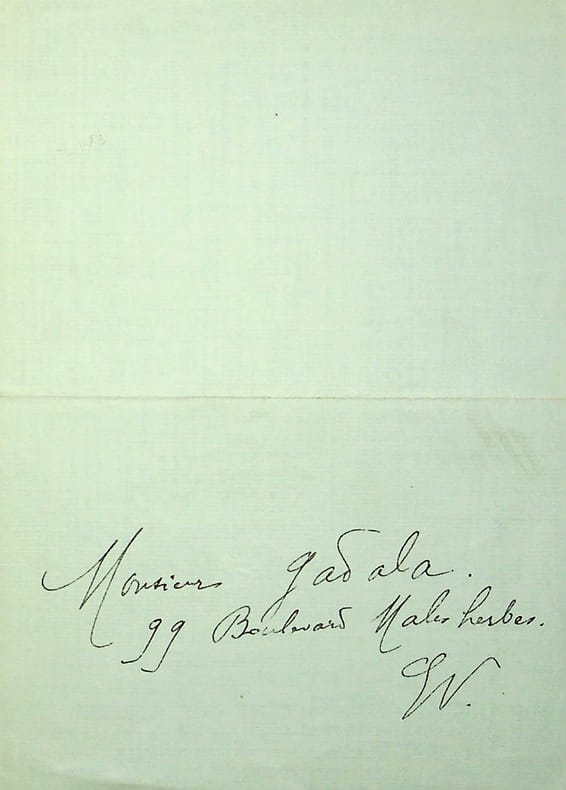 Monsieur Gadala.
99 Boulevard Malesherbes.
EV.